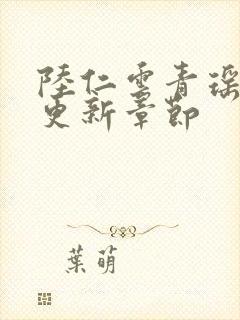 陸仁雲青瑤
更新章節
葉萌